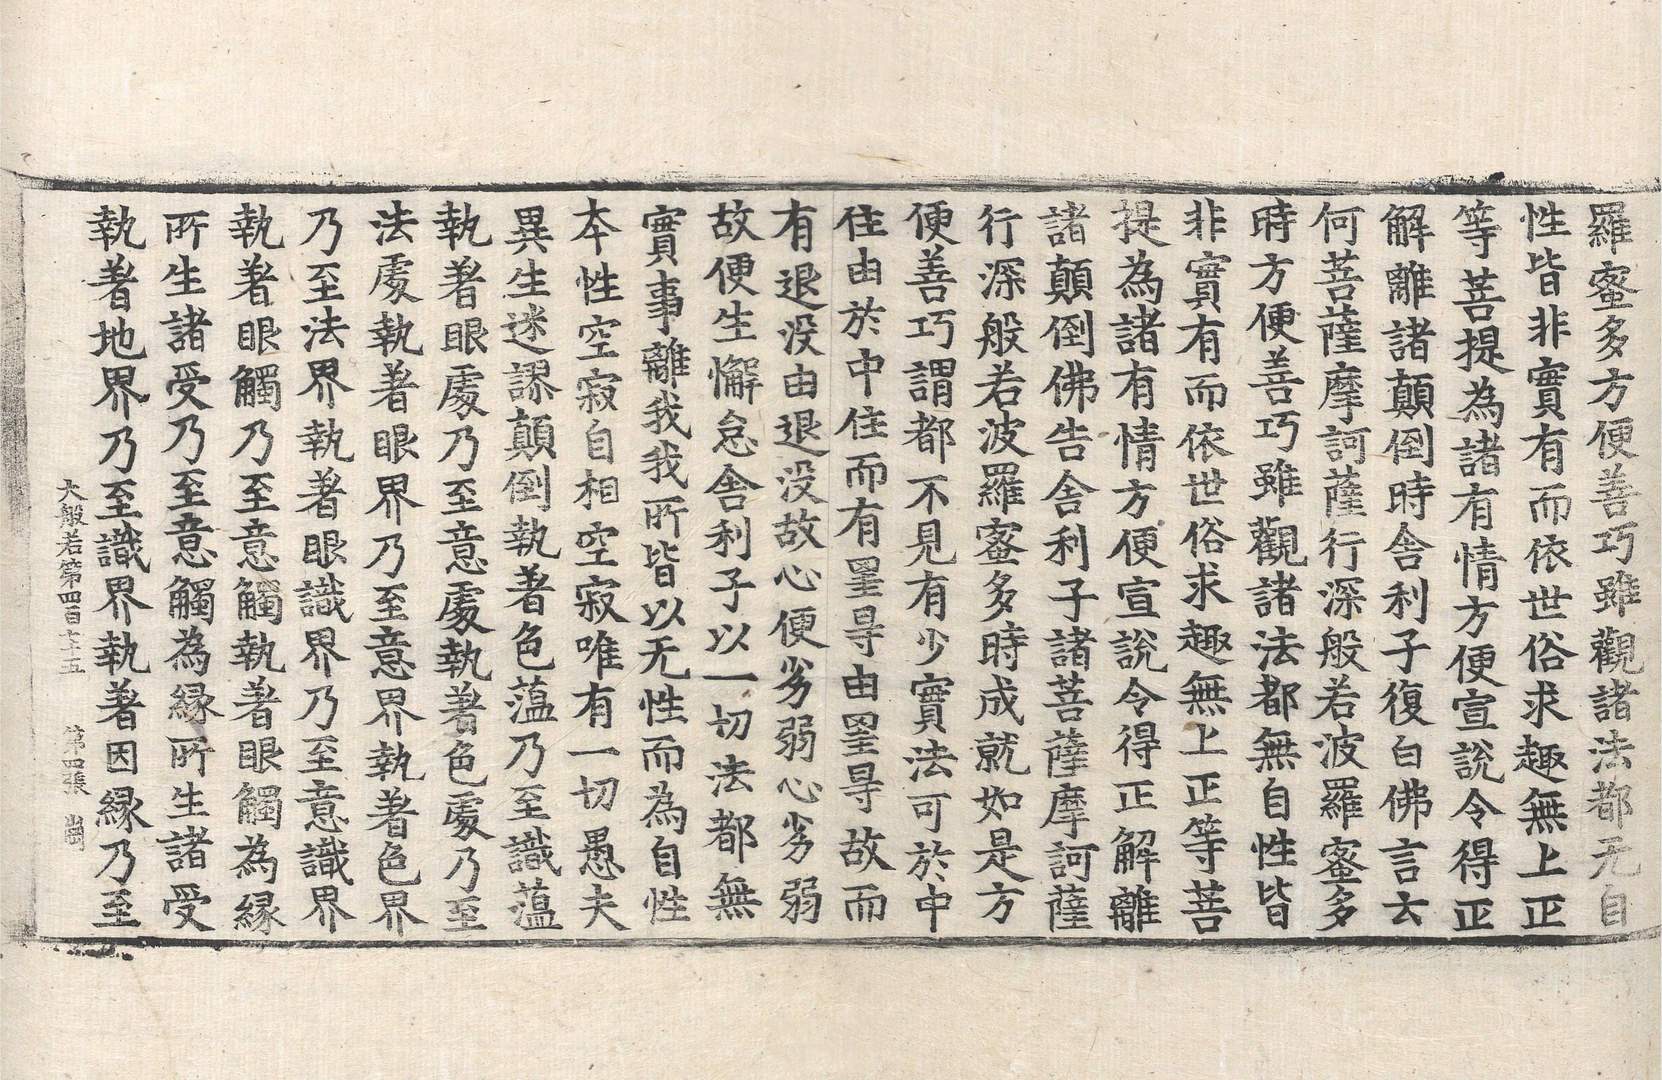 羅蜜多方便善巧雖觀諸法都无自
性皆非實有而依世俗求趣無上正
等菩提為諸有情方便宣說令得正
解離諸顛倒時舍利子復白佛言云
何菩薩摩訶薩行深般若波羅蜜多
時方便善巧雖觀諸法都無自性皆
非實有而依世俗求趣無上正等菩
提為諸有情方便宣說令得正解離
諸顛倒佛告舍利子諸菩薩摩訶薩
行深般若波羅蜜多時成就如是方
便善巧謂都不見有少實法可於中
住由於中住而有罣㝵由罣㝵故而
有退没由退没故心便劣弱心劣弱
故便生懈怠舍利子以一切法都無
實事離我我所皆以无性而為自性
本性空寂自相空寂唯有一切愚夫
異生迷謬顛倒執著色蘊乃至識蘊
執著眼處乃至意處執著色處乃至
法處執著眼界乃至意界執著色界
乃至法界執著眼識界乃至意識界
執著眼觸乃至意觸執著眼觸為緣
所生諸受乃至意觸為緣所生諸受
執著地界乃至識界執著因緣乃至
大般若第四百六十五 第四張 崗